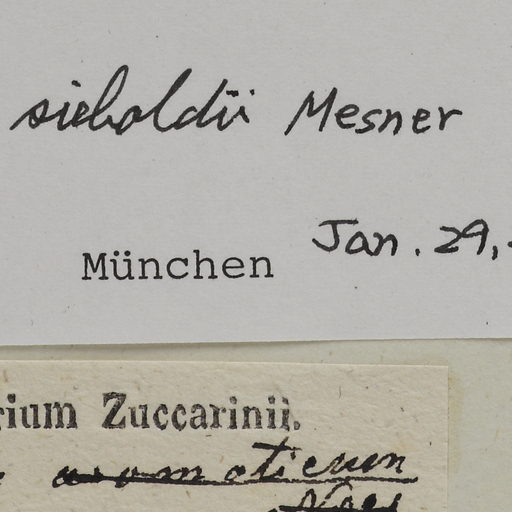 sieboldii Mesner
München Jan. 29,
rium Zuccarinii.
aromaticum
Nees